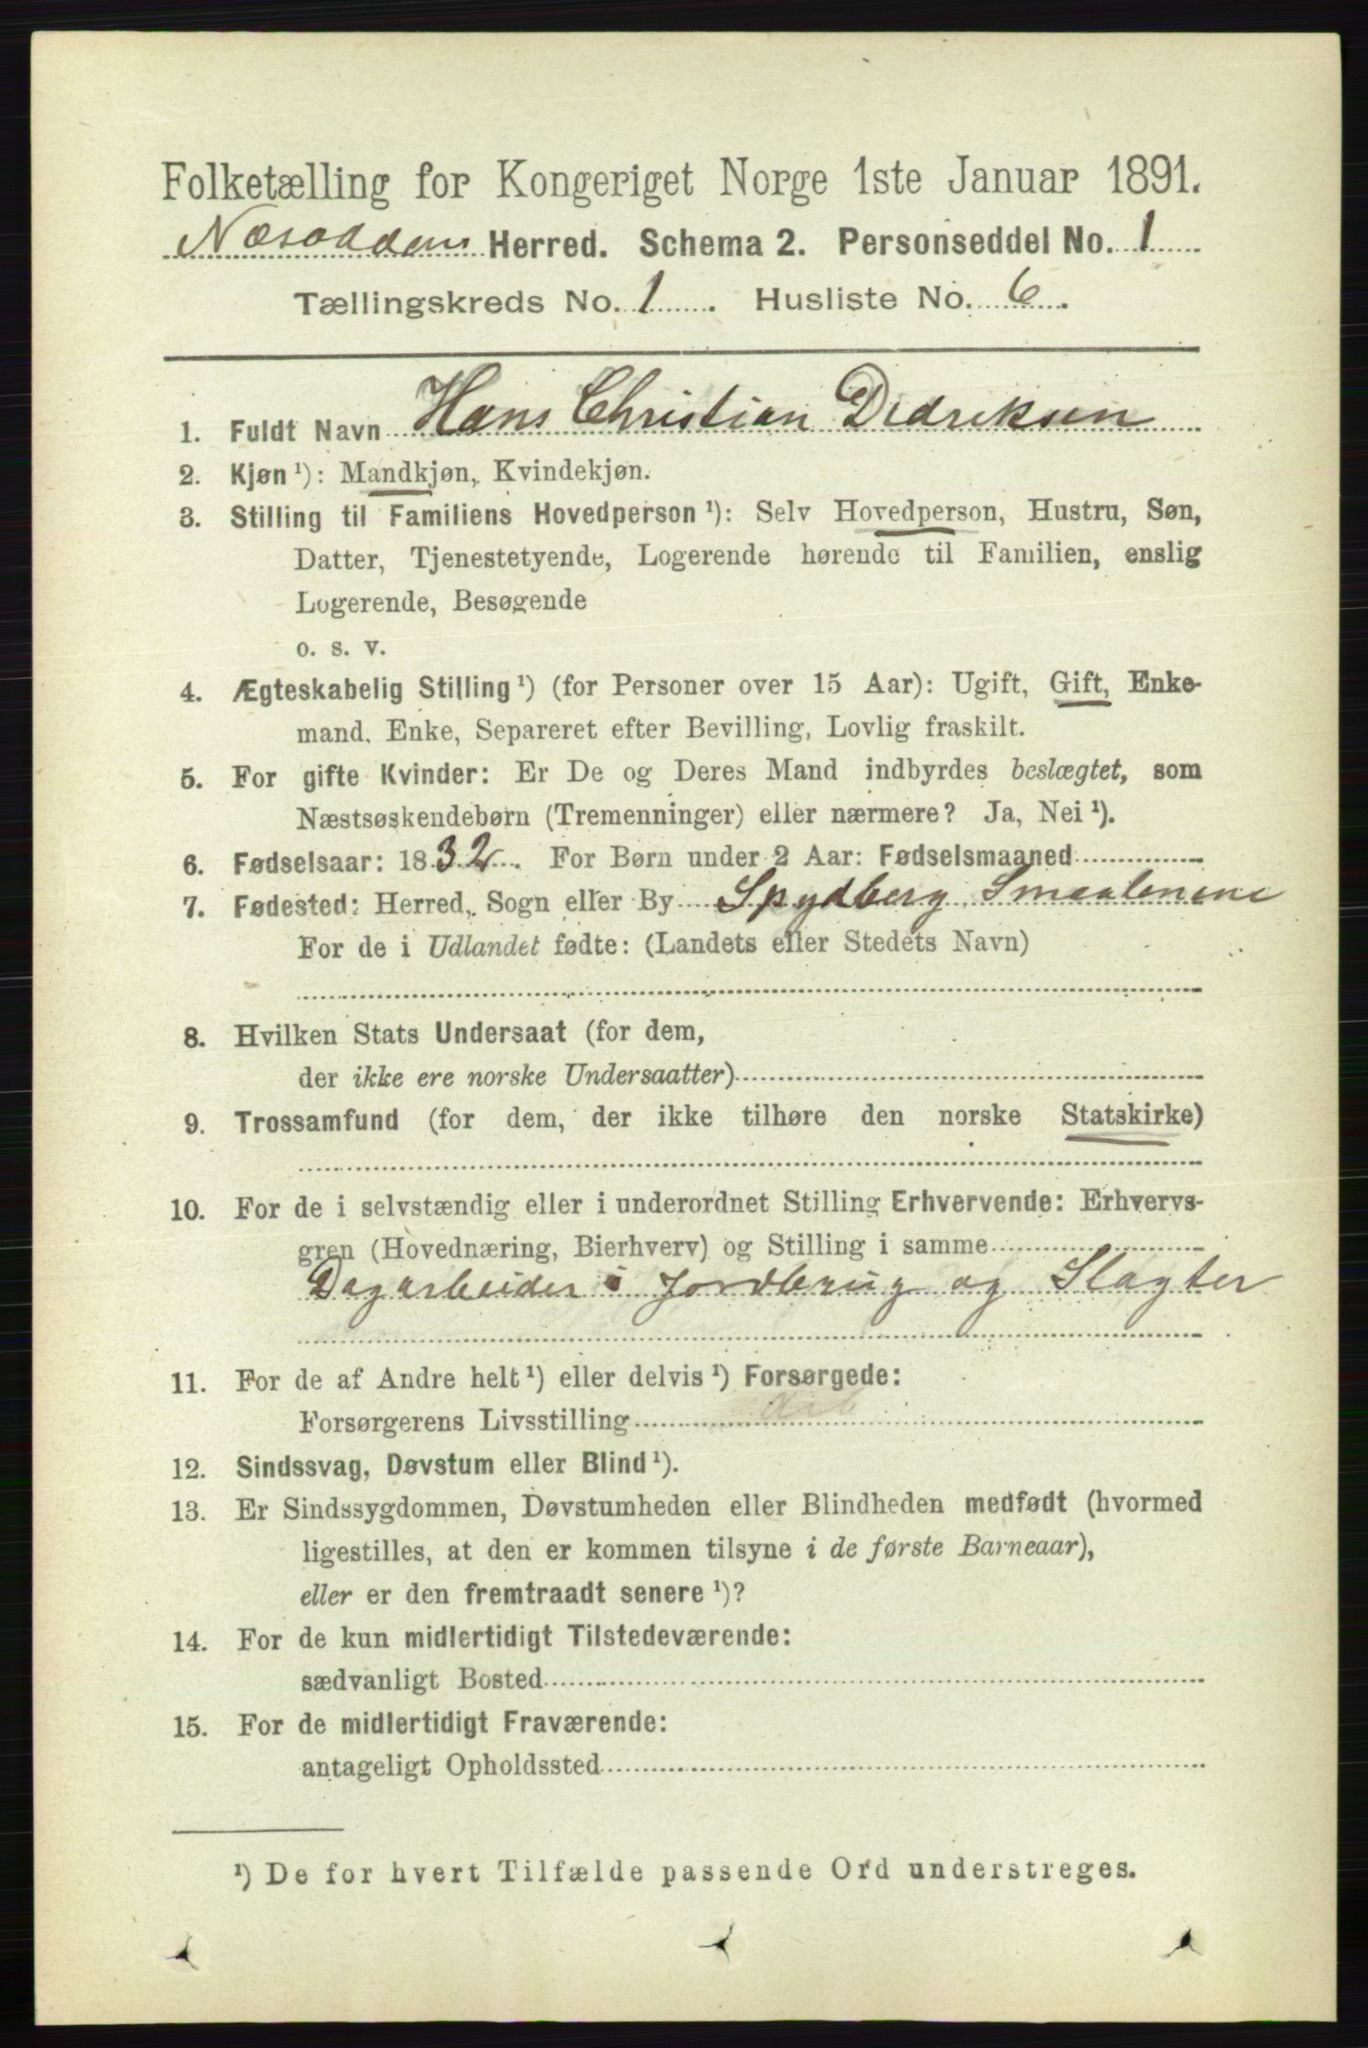 Folketælling for Kongeriget Norge 1ste Januar 1891.
Næsoddens Herred. Schema 2. Personseddel No. 1
Tællingskreds No. 1. Husliste No. 6.
1. Fuldt Navn Hans Christian Didriksen
2. Kjøn¹): Mandkjøn, Kvindekjøn.
3. Stilling til Familiens Hovedperson¹): Selv Hovedperson, Hustru, Søn,
Datter, Tjenestetyende, Logerende hørende til Familien, enslig
Logerende, Besøgende
o. s. v.
4. Ægteskabelig Stilling¹) (for Personer over 15 Aar): Ugift, Gift, Enke-
mand, Enke, Separeret efter Bevilling, Lovlig fraskilt.
5. For gifte Kvinder: Er De og Deres Mand indbyrdes beslægtet, som
Næstsøskendebørn (Tremenninger) eller nærmere? Ja, Nei¹).
6. Fødselsaar: 1832. For Børn under 2 Aar: Fødselsmaaned
7. Fødested: Herred, Sogn eller By Spydberg Smaalenene
For de i Udlandet fødte: (Landets eller Stedets Navn)
8. Hvilken Stats Undersaat (for dem,
der ikke ere norske Undersaatter)
9. Trossamfund (for dem, der ikke tilhøre den norske Statskirke)
10. For de i selvstændig eller i underordnet Stilling Erhvervende: Erhvervs-
gren (Hovednæring, Bierhverv) og Stilling i samme
Dagarbeider i Jordbrug og Slagter
11. For de af Andre helt¹) eller delvis¹) Forsørgede:
Forsørgerens Livsstilling
12. Sindssvag, Døvstum eller Blind¹).
13. Er Sindssygdommen, Døvstumheden eller Blindheden medfødt (hvormed
ligestilles, at den er kommen tilsyne i de første Barneaar),
eller er den fremtraadt senere¹)?
14. For de kun midlertidigt Tilstedeværende:
sædvanligt Bosted
15. For de midlertidigt Fraværende:
antageligt Opholdssted
¹) De for hvert Tilfælde passende Ord understreges.